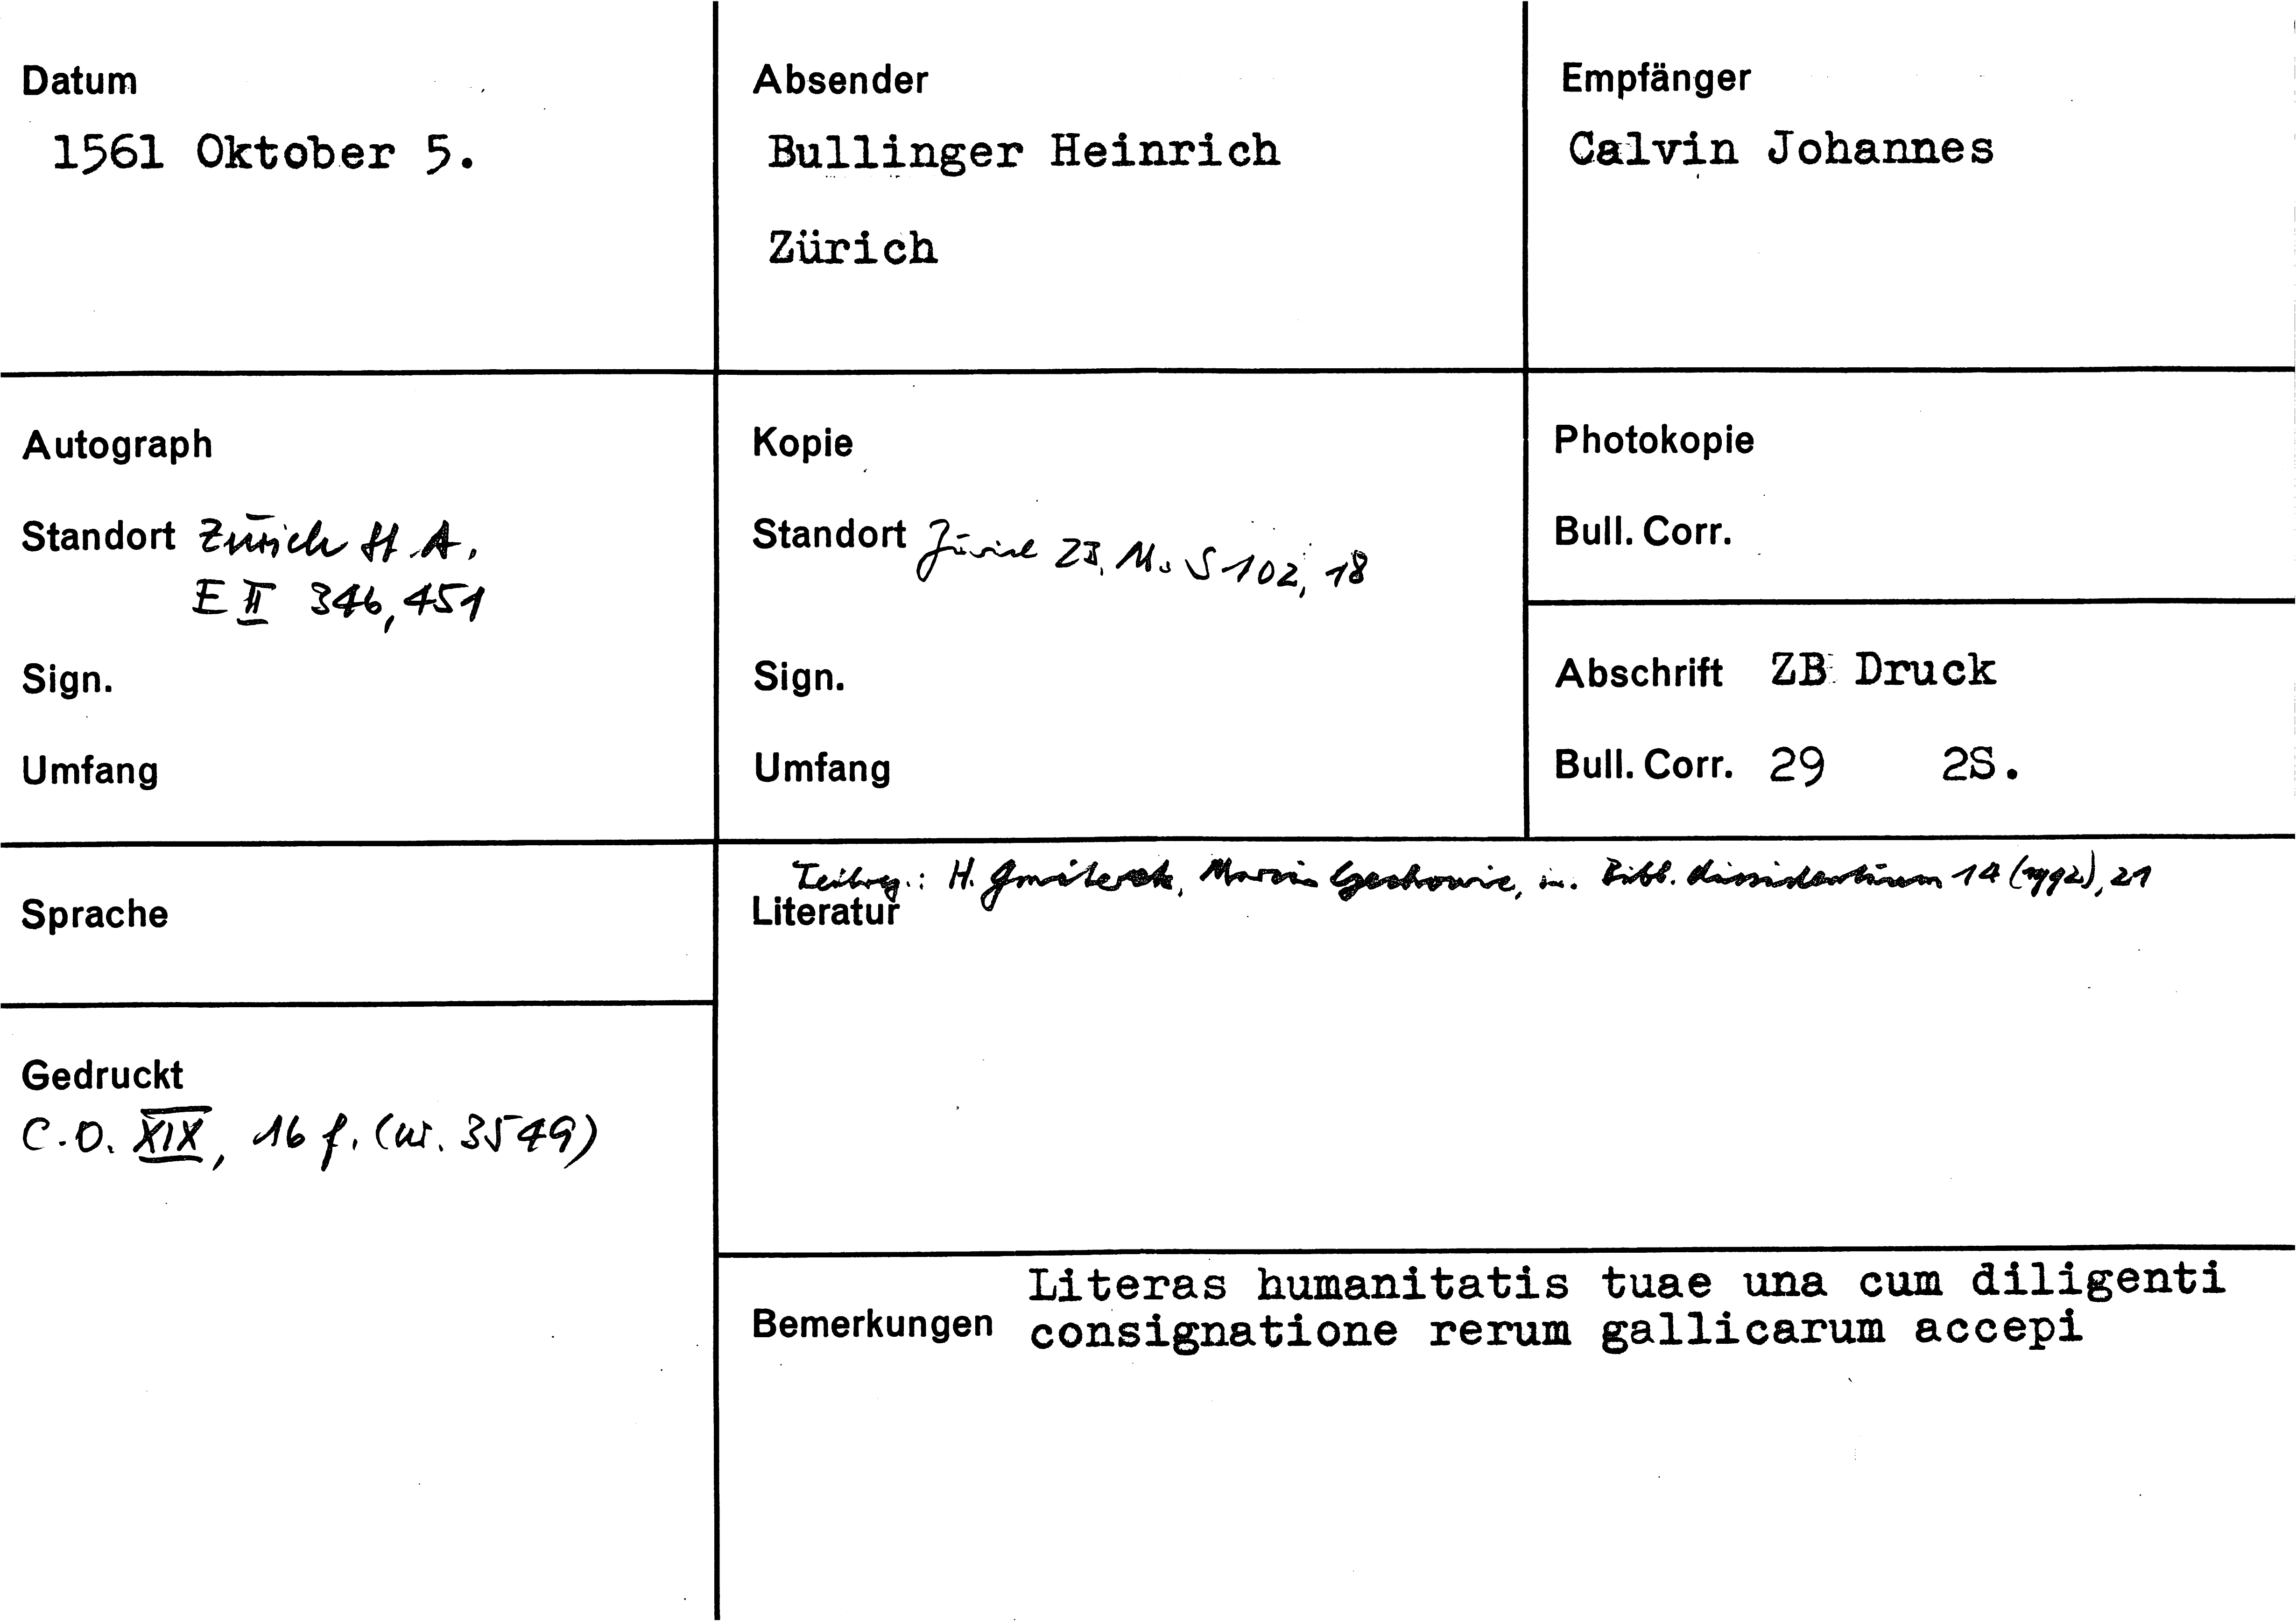 Datum
1561 Oktober 5.
Absender
Bullinger Heinrich
Zürich
Empfänger
Calvin Johannes
Autograph
Standort Zürich StA.
E II 346, 451
Sign.
Umfang
Kopie
Standort Zürich ZB, Ms S 102, 18
Sign.
Umfang
Photokopie
Bull. Corr.
Abschrift ZB Druck
Bull. Corr. 29 2S.
Sprache
H. in: Bibl. dissidentium 14 (1992), 21
Literatur
Gedruckt
C.O. XIX, 16 f. (Nr. 3549)
Literas humanitatis tuae una cum diligenti
Bemerkungen consignatione rerum gallicarum accepi